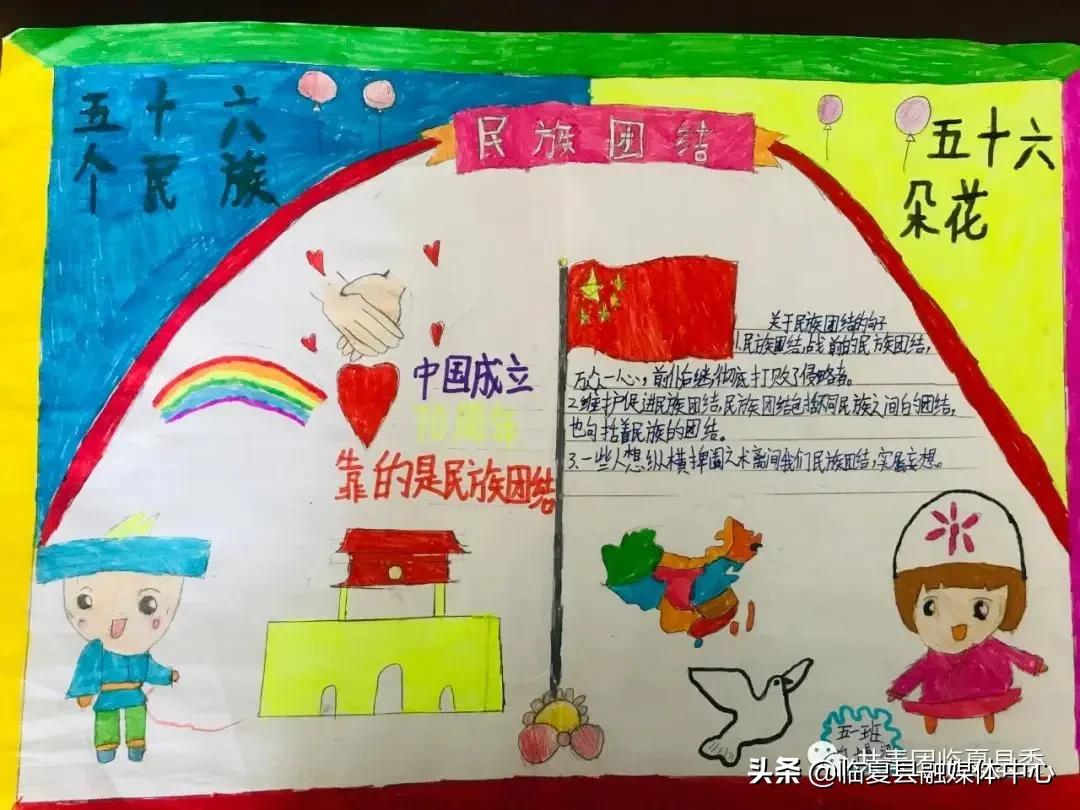 五十六
个民族
民族团结
五十六
朵花
中国成立
70周年
靠的是民族团结
关于民族团结的句子
1.民族团结,战前的民族团结,
万众一心,前仆后继,彻底打败了侵略者。
2.维护促进民族团结,民族团结包括不同民族之间的团结,
也包括着民族的团结。
3.一些人想纵横捭阖之术离间我们民族团结,实属妄想。
五一班
共青团临夏县委
头条@临夏县融媒体中心